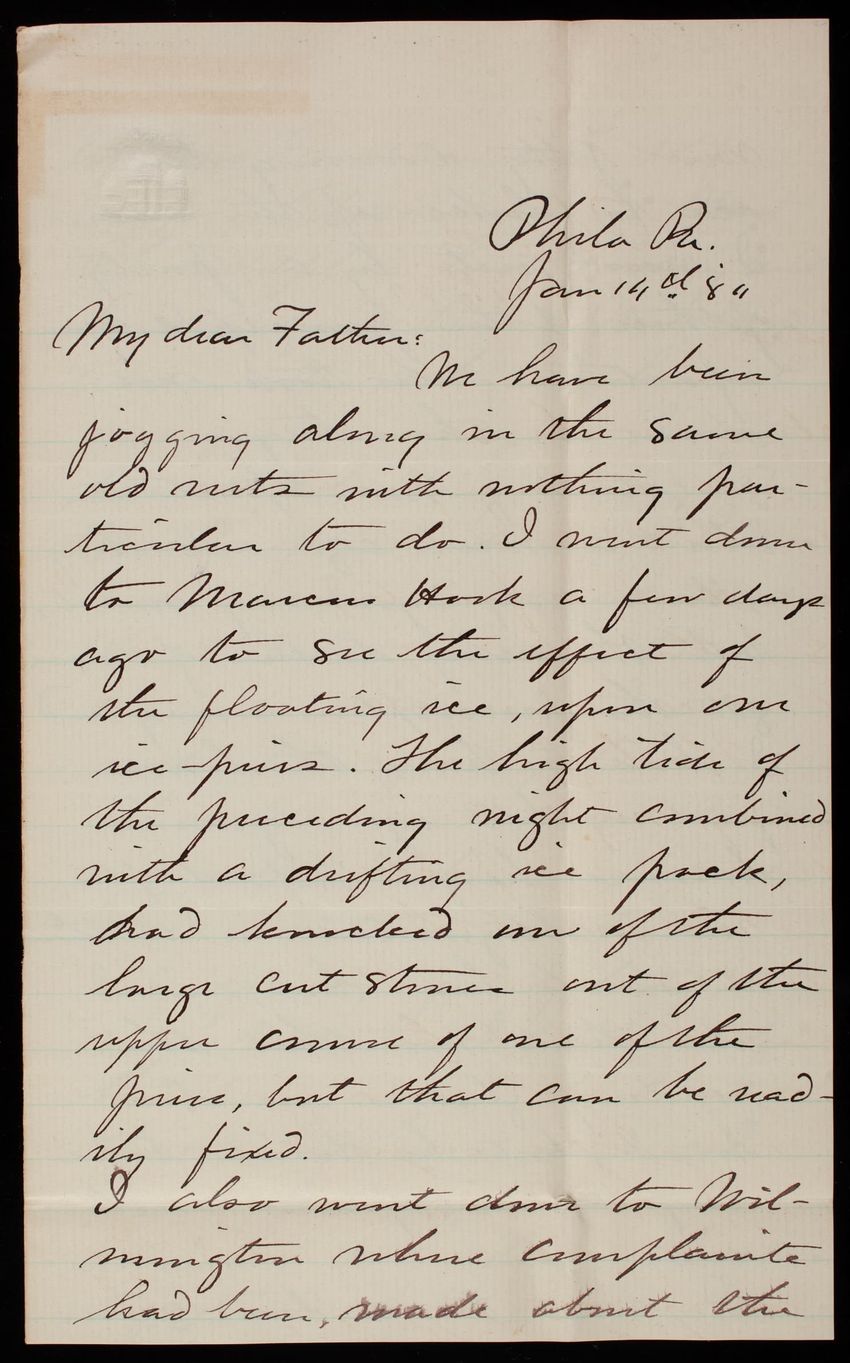 Phila Pa.
Jan 14th 80
My dear Father:
We have been
jogging along in the same
old ruts with nothing par-
ticular to do. I went down
to Marcus Hook a few days
ago to see the effect of
the floating ice, upon our
ice-piers. The high tide of
the preceding night combined
with a drifting ice pack,
had knocked one of the
large cut stones out of the
upper course of one of the
piers, but that can be read-
ily fixed.
I also went down to Wil-
mington where complaints
had been, made about the